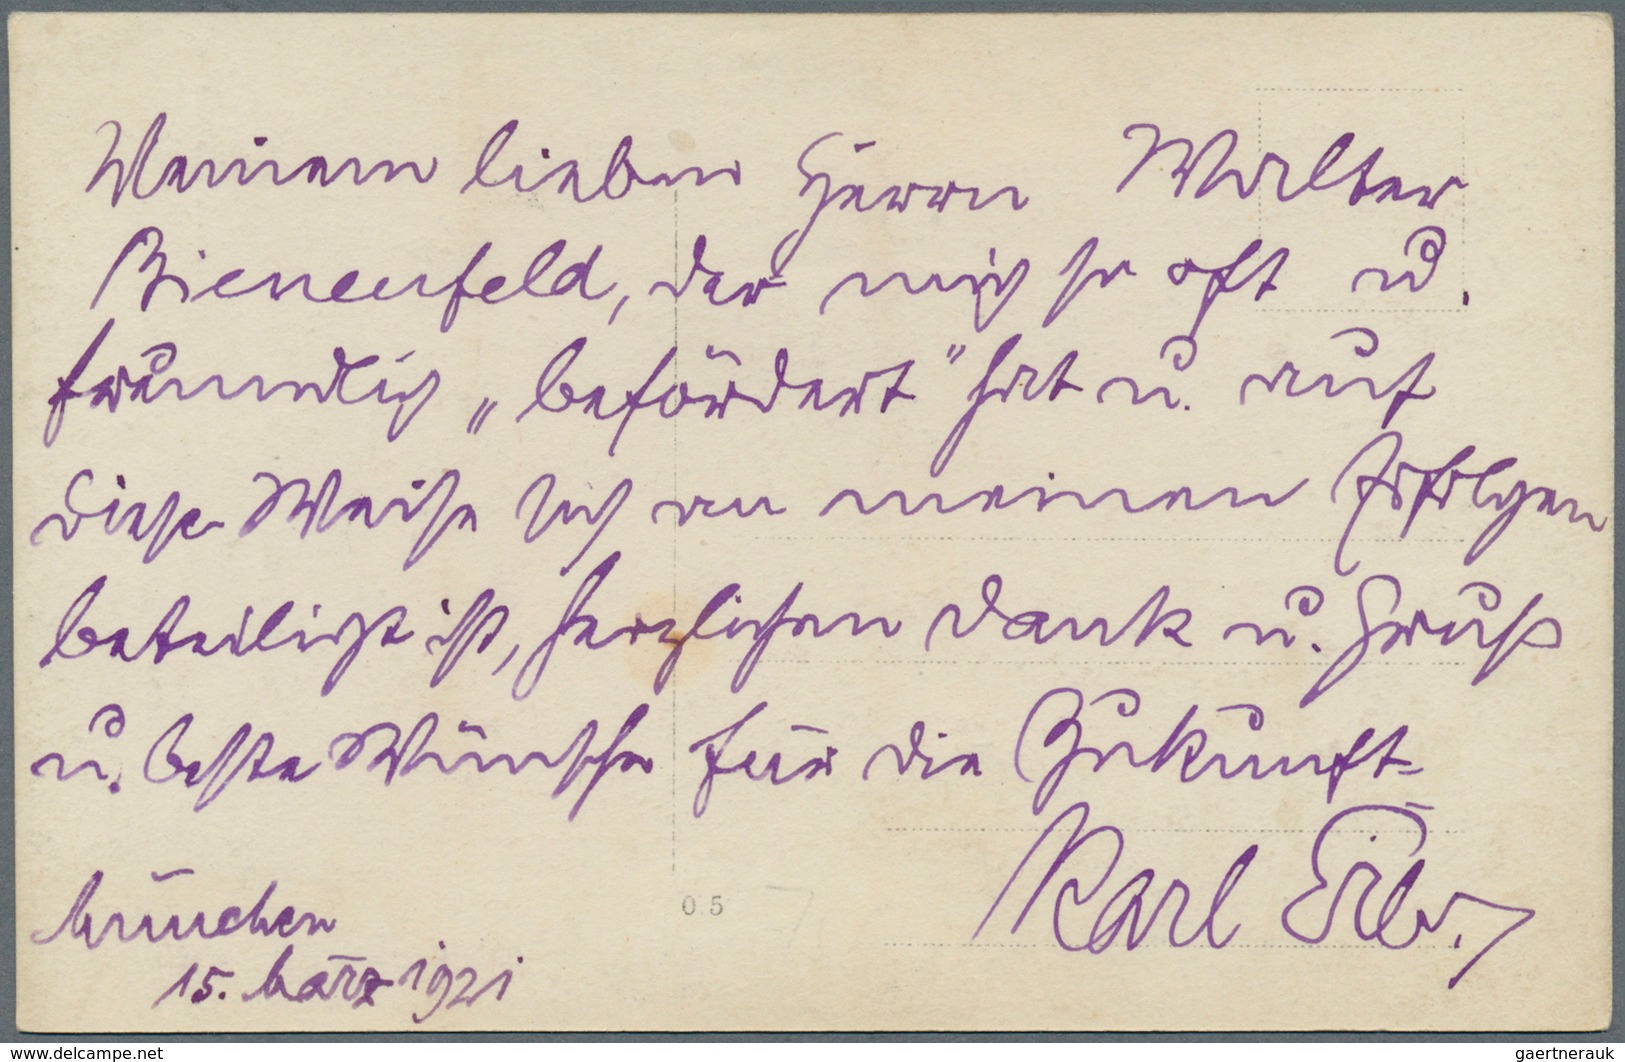 Meinem lieben Herrn Walter
Bienenfeld, der mich so oft u.
freundlich „befördert" hat u. auf
diese Weise sich an meinen Erfolgen
beteiligt ist, herzlichen Dank u. Gruß
u. beste Wünsche für die Zukunft
Karl Erb.
München
15. März 1921
05
www.delcampe.net
gaertnerauk